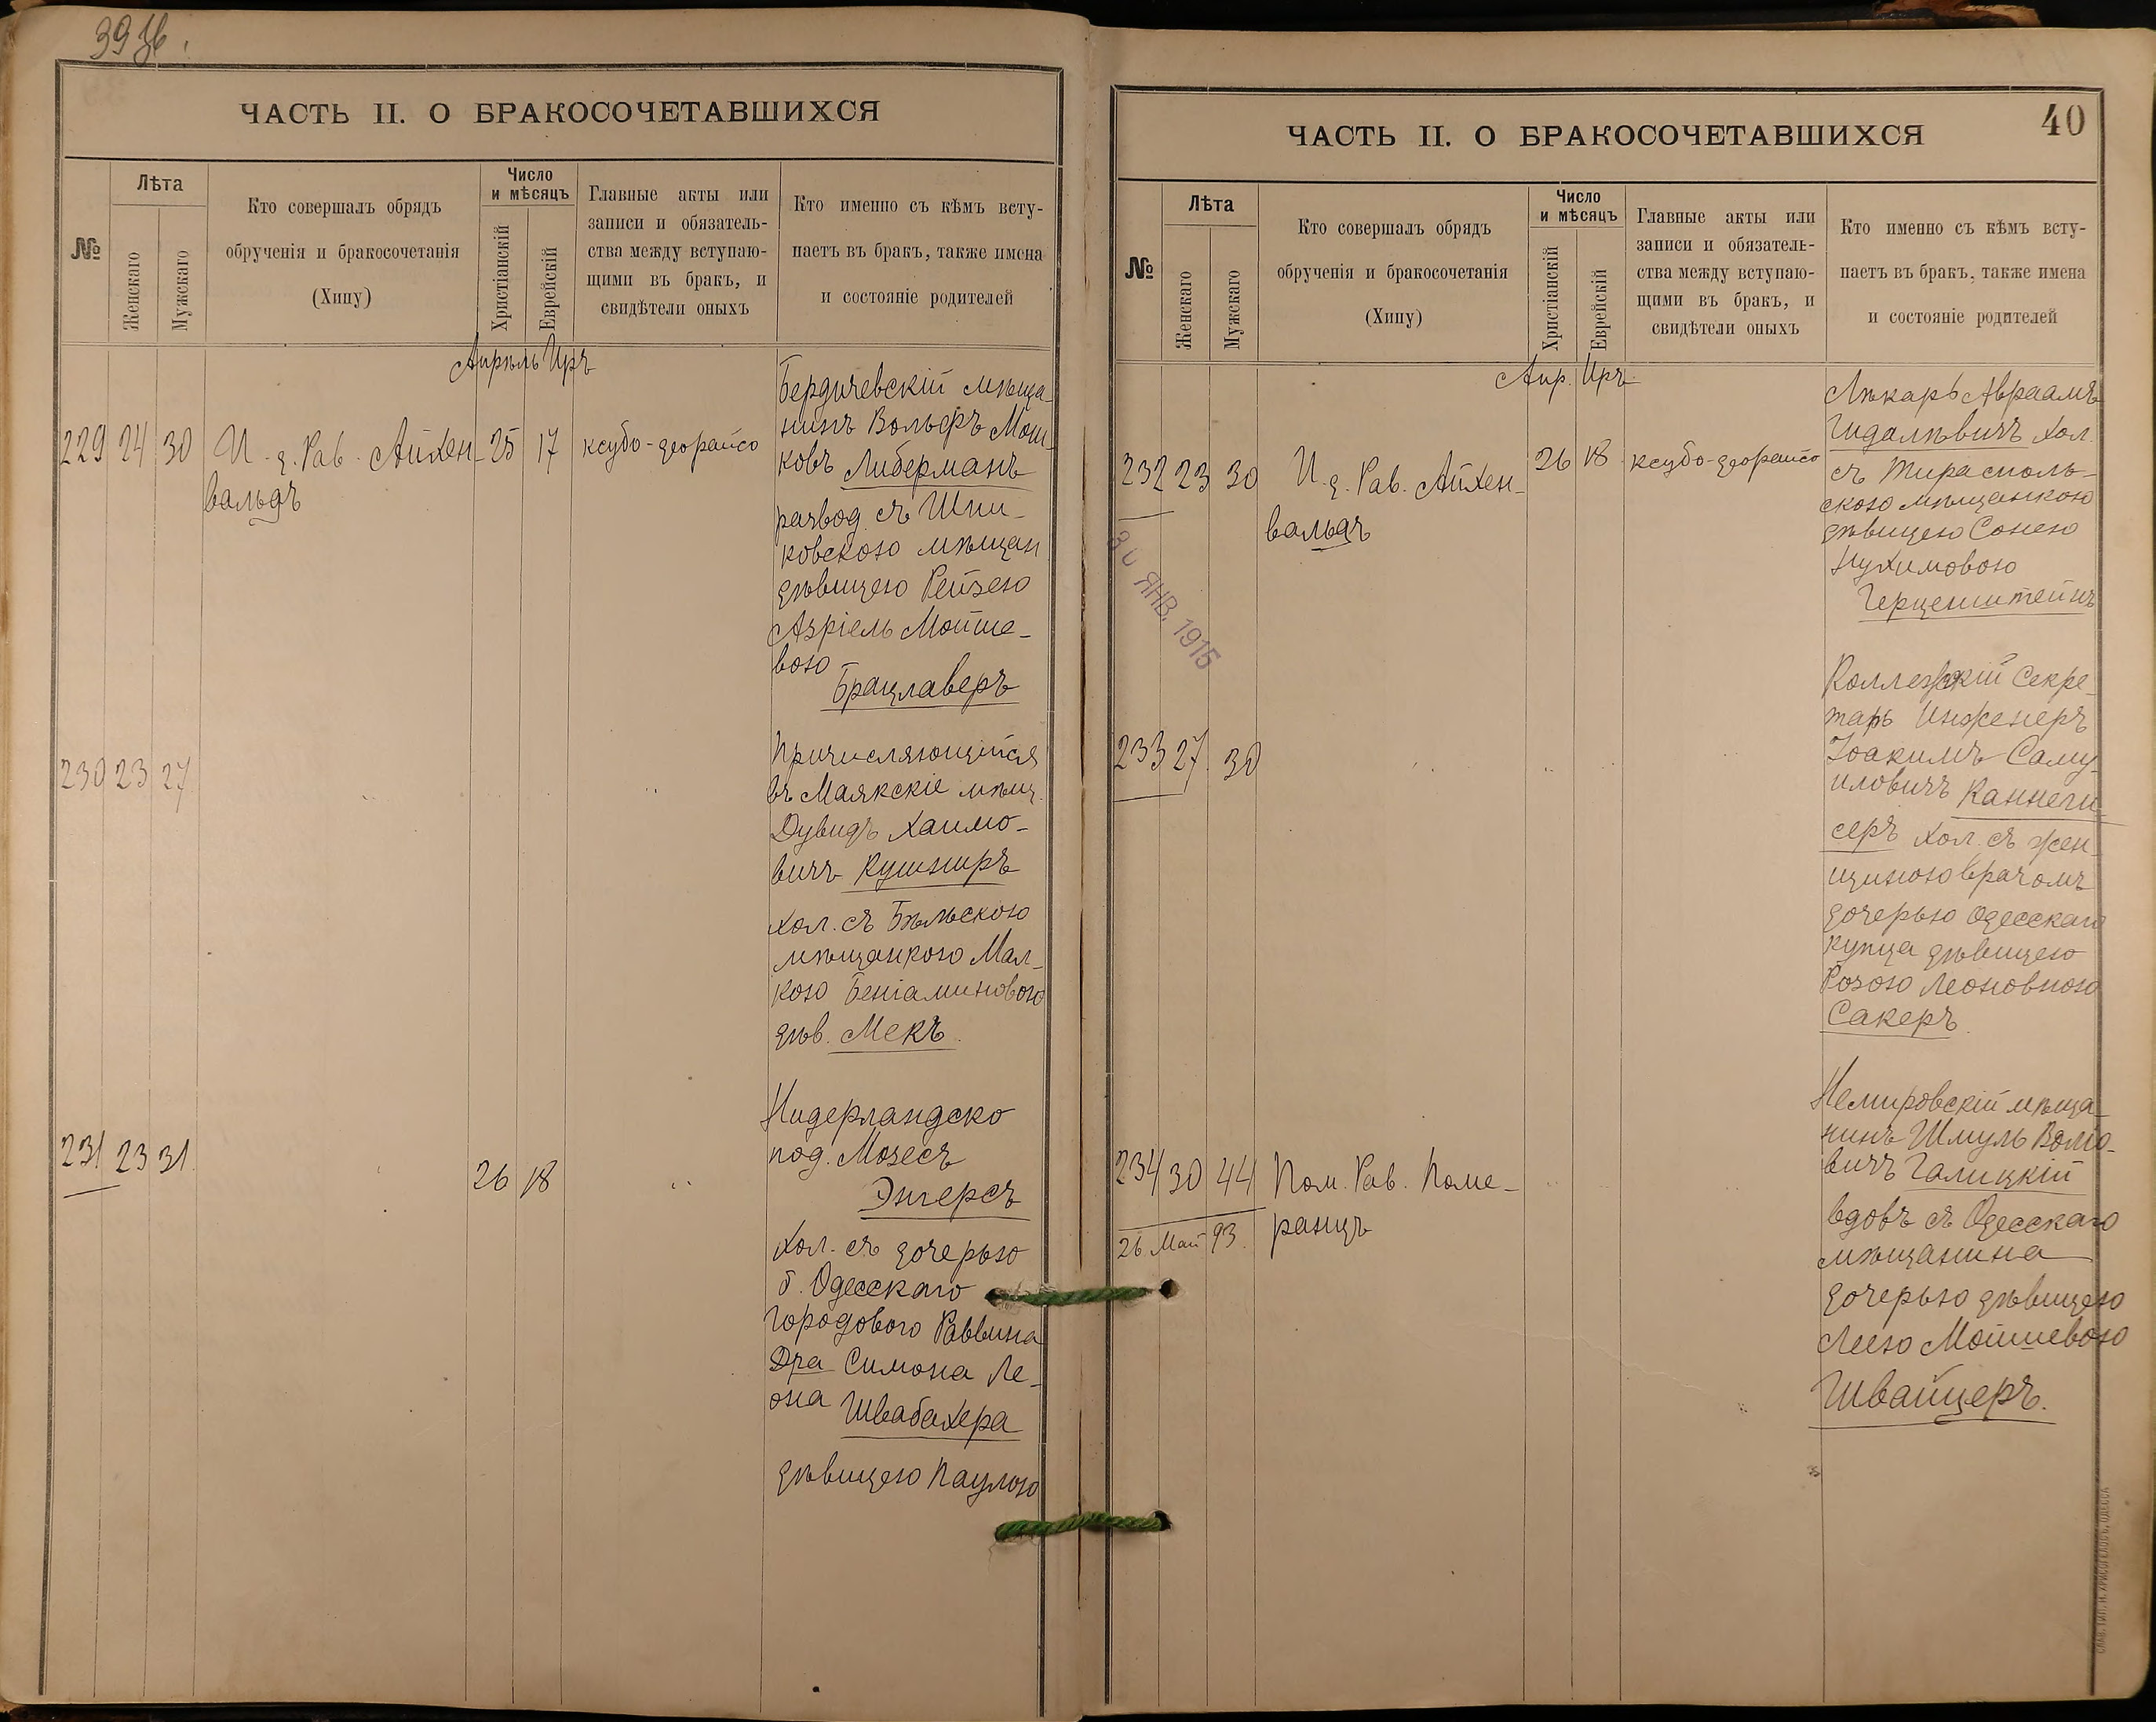 39 зб.
ЧАСТЬ II. О БРАКОСОЧЕТАВШИХСЯ
№
Лѣта
Женскаго
Мужскаго
Кто совершалъ обрядъ
обрученія и бракосочетанія
(Хипу)
Число
и мѣсяцъ
Христіанскій
Еврейскій
Главные акты или
записи и обязатель-
ства между вступаю-
щими въ бракъ, и
свидѣтели оныхъ
Кто именно съ кѣмъ всту-
паетъ въ бракъ, также имена
и состояніе родителей
Апрѣль Иръ
229 24 30 И. д. Рав. Айхен-
вальдъ
25 17 ксубо-деорайсо
Бердичевскій мѣща-
нинъ Вольфъ Мош-
ковъ Либерманъ
развод. съ Шпи-
ковскою мѣщан
дѣвицею Рейзею
Азріель Мойше-
вою
Брацлаверъ
230 23 27
Причисляющійся
въ Маякскіе мѣщ.
Дувидъ Хаимо-
вичъ Кушниръ
хол. съ Бѣльскою
мѣщанкою Мал-
кою Беніаминовою
дѣв. Мекъ.
231 23 31
26 18
Нидерландско
под. Мозесъ
Энгерсъ
Хол. съ дочерью
б. Одесскаго
городового Раввина
Дра Симона Ле-
она Швабахера
дѣвицею Паулою
40
ЧАСТЬ II. О БРАКОСОЧЕТАВШИХСЯ
№
Лѣта
Женскаго
Мужскаго
Кто совершалъ обрядъ
обрученія и бракосочетанія
(Хипу)
Число
и мѣсяцъ
Христіанскій
Еврейскій
Главные акты или
записи и обязатель-
ства между вступаю-
щими въ бракъ, и
свидѣтели оныхъ
Кто именно съ кѣмъ всту-
паетъ въ бракъ, также имена
и состояніе родителей
Апр. Иръ
232 23 30 И. д. Рав. Айхен-
вальдъ
26 18 ксубо-деорайсо
Лѣкарь Авраамъ
Гидалѣвичъ хол.
съ Тирасполь-
скою мѣщанкою
дѣвицею Сонею
Нухимовою
Герценштейнъ
30 ЯНВ. 1915
233 27 30
Коллежскій Секре-
тарь Инженеръ
Іоакимъ Саму-
иловичъ Каннеги-
серъ хол. съ жен-
щиною врачомъ
дочерью Одесскаго
купца дѣвицею
Розою Леоновною
Сакеръ.
234 30 44 Пом. Рав. Поме-
ранцъ
26 Май 93.
Немировскій мѣща-
нинъ Шмуль Волю-
вичъ Галицкій
вдовъ съ Одесскаго
мѣщанина
дочерью дѣвицею
Леею Мойшевою
Швайцеръ.